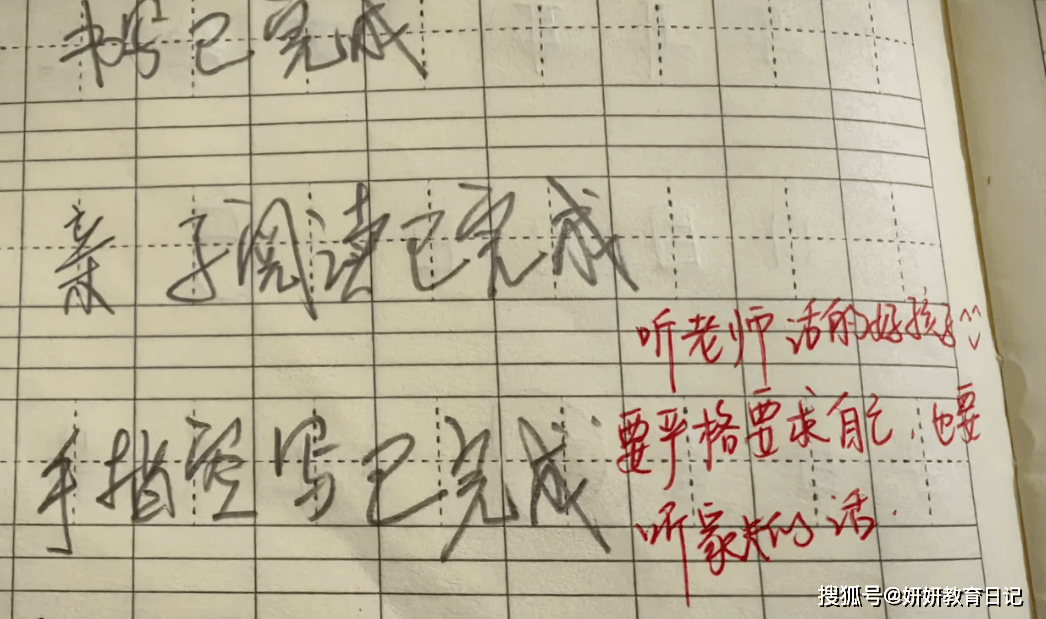 书写已完成
亲子阅读已完成
听老师话的好孩子^^
要严格要求自己,也要
手指竖写已完成
听家长的话.
搜狐号@妍妍教育日记